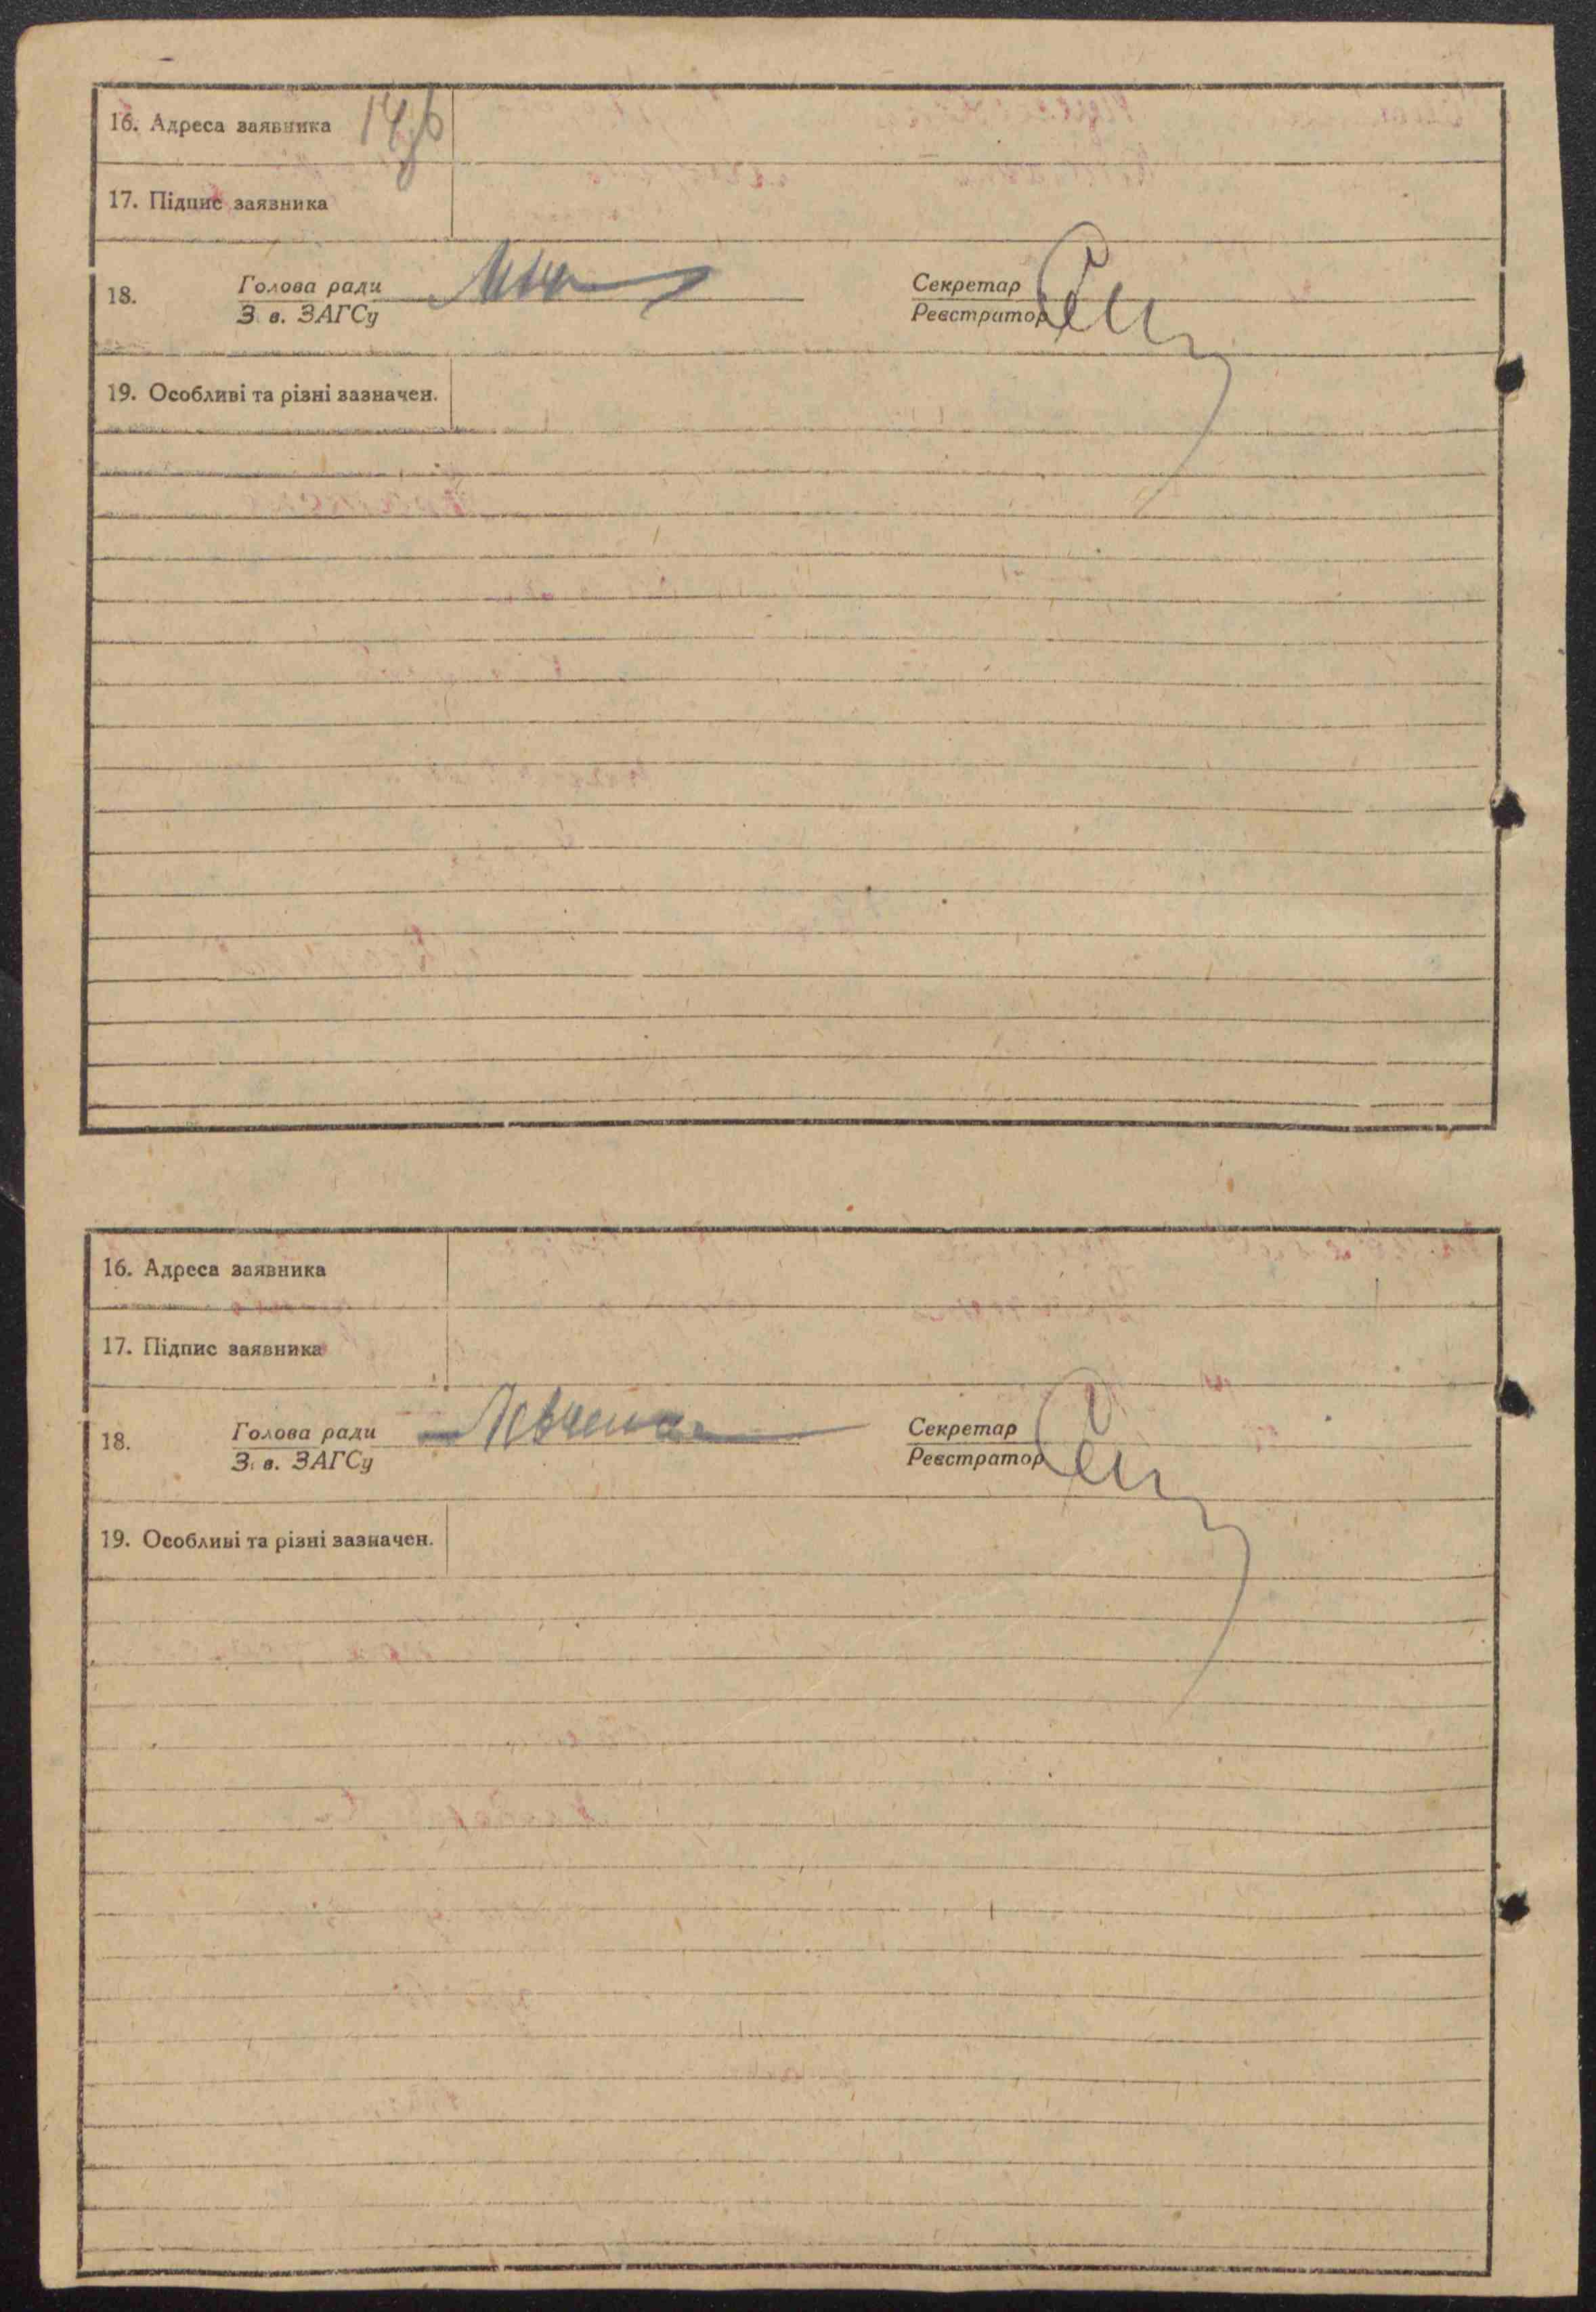 16. Адреса заявника
17. Підпис заявника
18. Голова ради Секретар
З. в. ЗАГСу Реєстратор
19. Особливі та різні зазначен.
16. Адреса заявника
17. Підпис заявника
18. Голова ради Левченко Секретар
З. в. ЗАГСу Реєстратор
19. Особливі та різні зазначен.